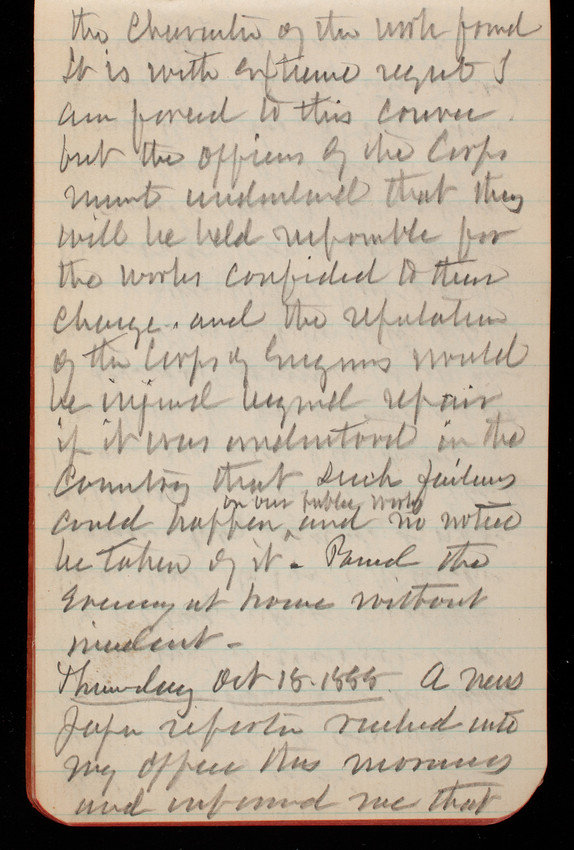 the Character of the work found
It is with extreme regret I
am forced to this course.
but the officers of the Corps
must understand that they
will be held responsible for
the works confided to their
charge. and the reputation
of the Corps of Engineers would
be injured beyond repair
if it was understood in the
Country that such failures
on our public works
could happen and no notice
be taken of it. Passed the
Evening at home without
incident -
Thursday Oct 18. 1888 A news
paper reporter rushed into
my office this morning
and informed me that